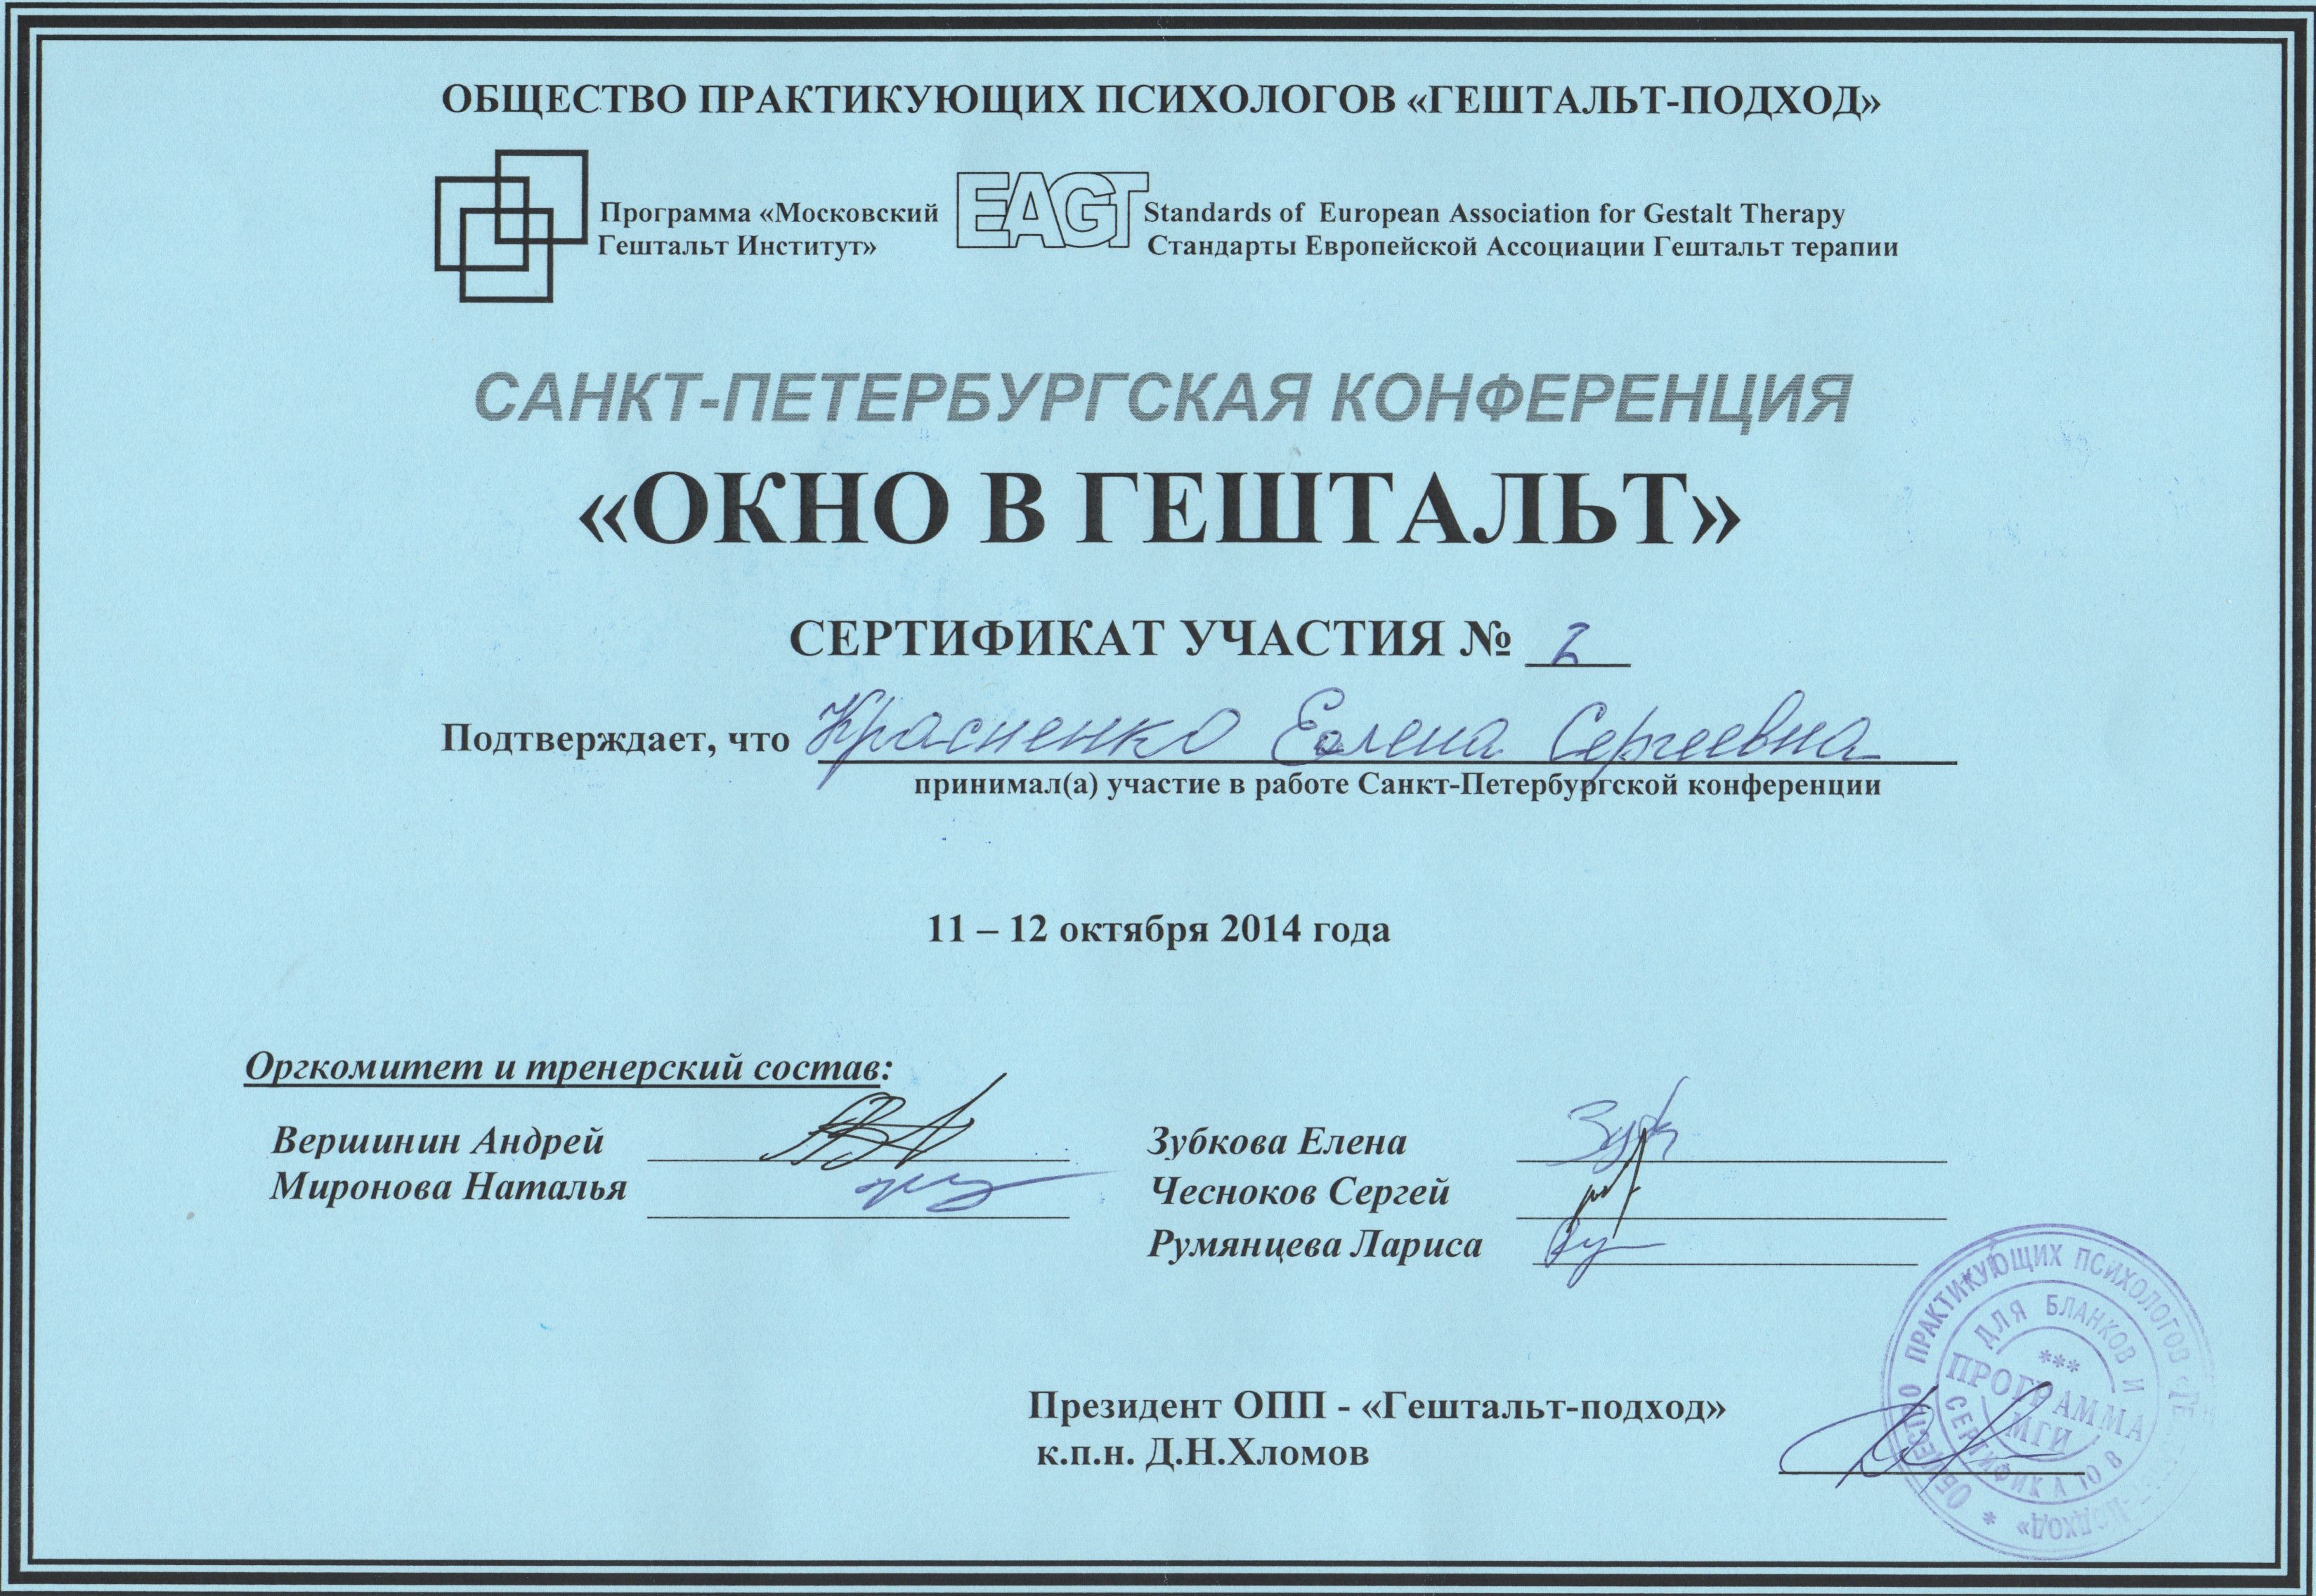 ОБЩЕСТВО ПРАКТИКУЮЩИХ ПСИХОЛОГОВ «ГЕШТАЛЬТ-ПОДХОД»
Программа «Московский
Гештальт Институт»
EAGT
Standards of European Association for Gestalt Therapy
Стандарты Европейской Ассоциации Гештальт терапии
САНКТ-ПЕТЕРБУРГСКАЯ КОНФЕРЕНЦИЯ
«ОКНО В ГЕШТАЛЬТ»
СЕРТИФИКАТ УЧАСТИЯ № 2
Подтверждает, что Красненко Елена Сергеевна
принимал(а) участие в работе Санкт-Петербургской конференции
11 – 12 октября 2014 года
Оргкомитет и тренерский состав:
Вершинин Андрей
Миронова Наталья
Зубкова Елена
Чесноков Сергей
Румянцева Лариса
Президент ОПП - «Гештальт-подход»
к.п.н. Д.Н.Хломов
ОБЩЕСТВО ПРАКТИКУЮЩИХ ПСИХОЛОГОВ
ДЛЯ БЛАНКОВ И
СЕРТИФИКАТОВ
***
ПРОГРАММА
МГИ